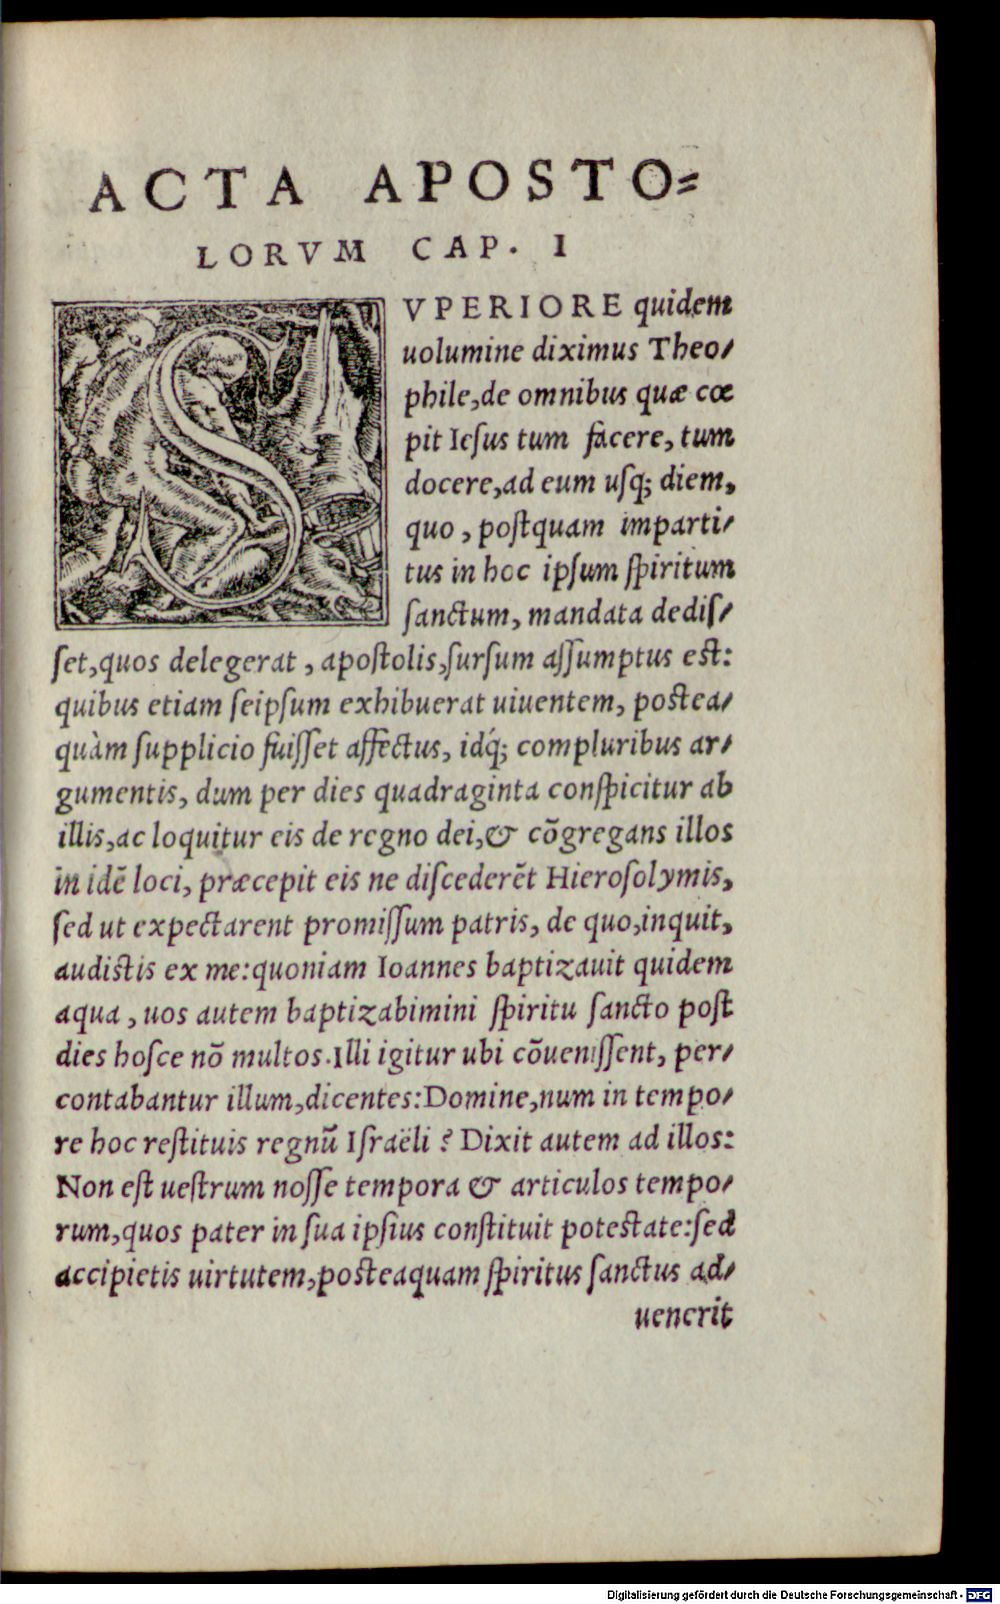 ACTA APOSTO⸗
LORVM CAP. I
SVPERIORE quidem
uolumine diximus Theo⸗
phile,de omnibus quæ cœ
pit Iesus tum facere, tum
docere,ad eum usq; diem,
quo, postquam imparti⸗
tus in hoc ipsum spiritum
sanctum, mandata dedis⸗
set,quos delegerat, apostolis,sursum assumptus est:
quibus etiam seipsum exhibuerat uiuentem, postea⸗
quàm supplicio fuisset affectus, idq́; compluribus ar⸗
gumentis, dum per dies quadraginta conspicitur ab
illis,ac loquitur eis de regno dei,& cōgregans illos
in idē loci, præcepit eis ne discederēt Hierosolymis,
sed ut expectarent promissum patris, de quo,inquit,
audistis ex me:quoniam Ioannes baptizauit quidem
aqua, uos autem baptizabimini spiritu sancto post
dies hosce nō multos.Illi igitur ubi cōuenissent, per⸗
contabantur illum,dicentes:Domine,num in tempo⸗
re hoc restituis regnū Israëli? Dixit autem ad illos:
Non est uestrum nosse tempora & articulos tempo⸗
rum,quos pater in sua ipsius constituit potestate:sed
accipietis uirtutem,posteaquam spiritus sanctus ad⸗
uenerit
Digitalisierung gefördert durch die Deutsche Forschungsgemeinschaft - DFG